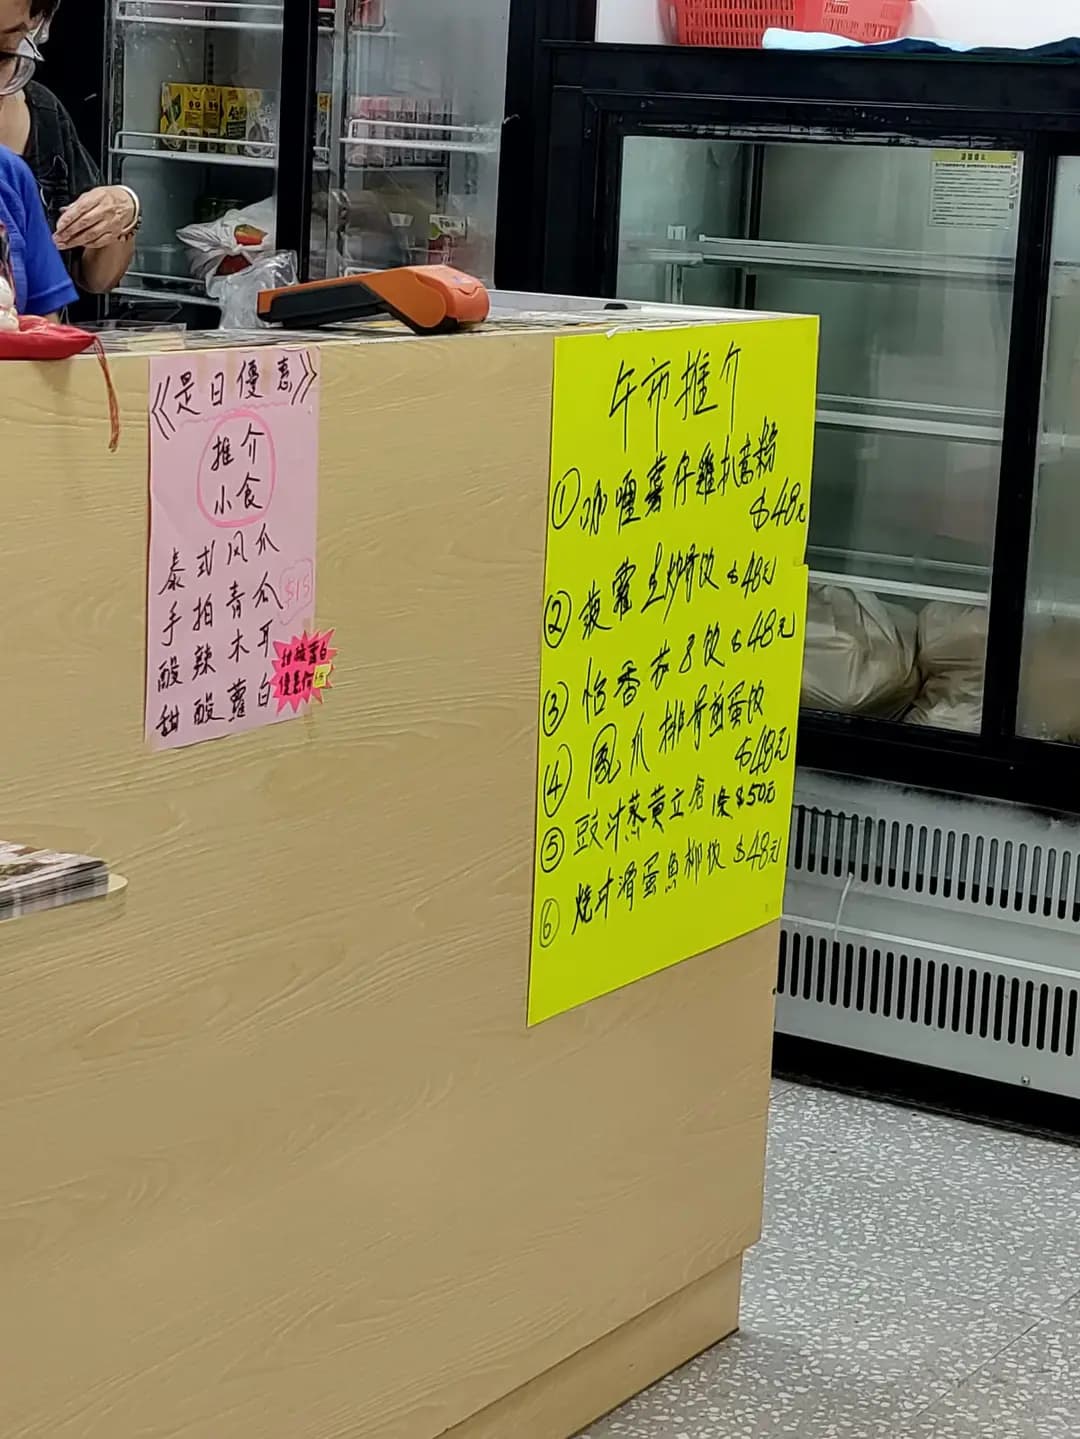 《是日優惠》
推介
小食
泰式风爪
手拍青瓜 $15
酸辣木耳
甜酸蘿白
優惠价
午市推介
① 咖喱薯仔雞扒意粉
$48元
② 菠蘿生炒骨饭 $48元
③ 怡香茄子饭 $48元
④ 鳳爪排骨煎蛋饭
$48元
⑤ 豉汁蒸黄立倉 1條 $50元
⑥ 燒汁滑蛋魚柳饭 $48元